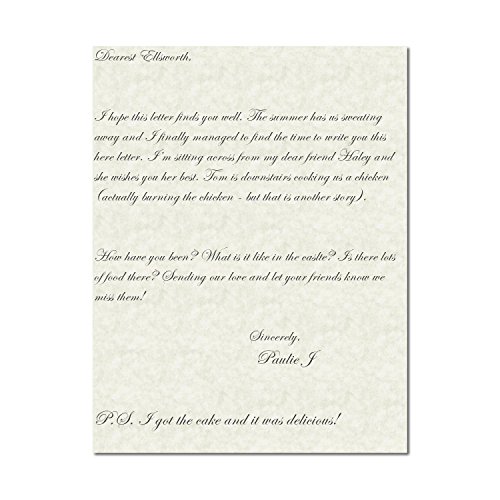 Dearest Ellsworth,
I hope this letter finds you well. The summer has us sweating
away and I finally managed to find the time to write you this
here letter. I'm sitting across from my dear friend Haley and
she wishes you her best. Tom is downstairs cooking us a chicken
(actually burning the chicken - but that is another story).
How have you been? What is it like in the caslte? Is there lots
of food there? Sending our love and let your friends know we
miss them!
Sincerely,
Paulie J
P.S. I got the cake and it was delicious!